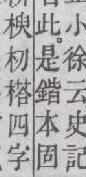 小徐云史記
此。是鍇本固
楰杒榙四字